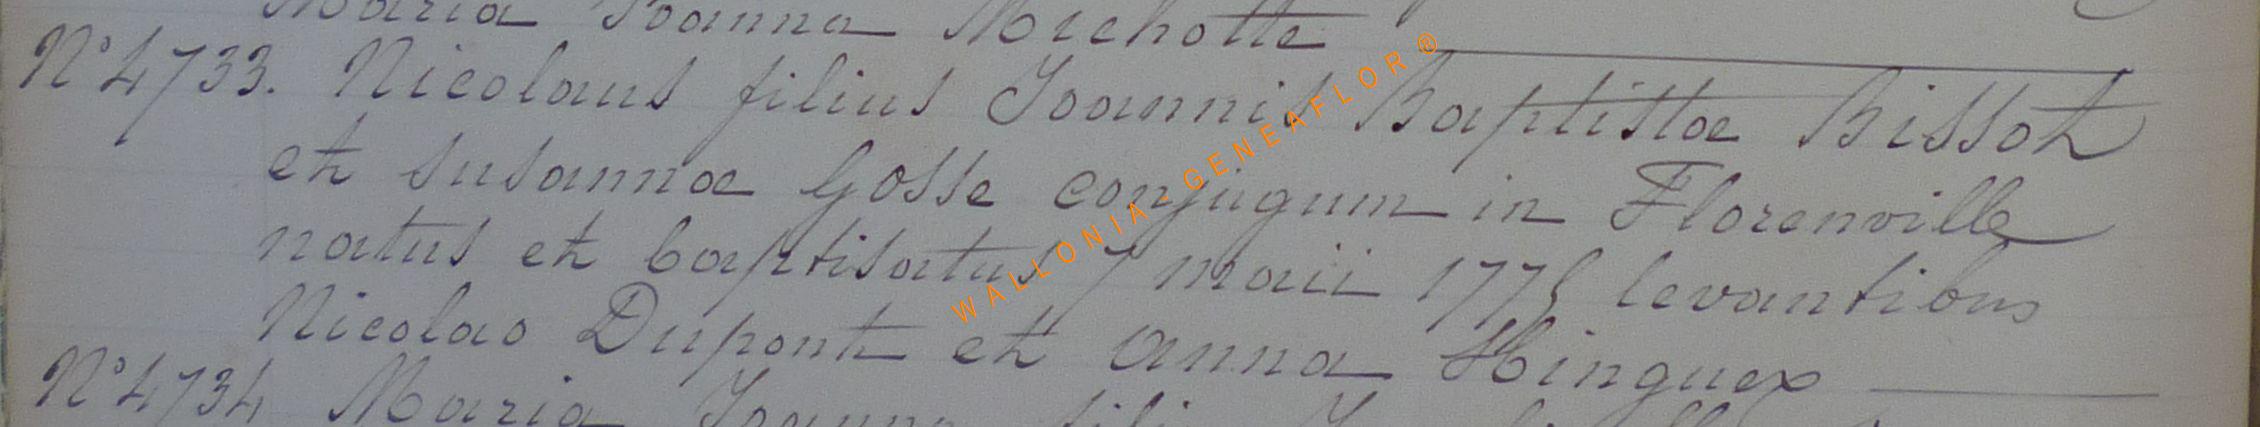 Maria Joanna Michotte
N° 4733. Nicolaus filius Joannis Baptistae Bissot
et susannae Gosse conjugum in Florenville
natus et baptisatus 7 maii 1775 levantibus
Nicolao Dupont et Anna Hinguex
N° 4734 Maria Joanna
WALLONIA - GENEAFLOR ®